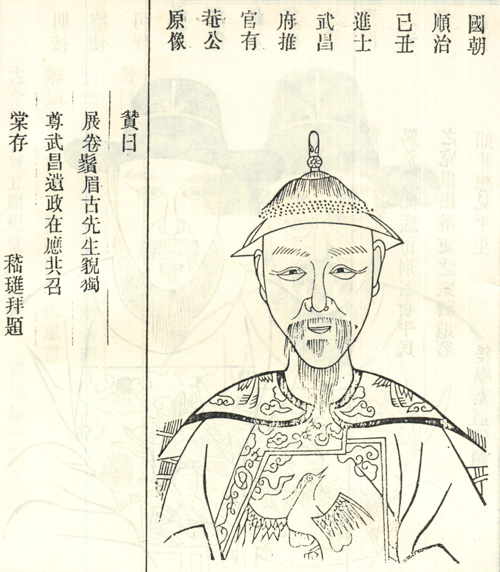 國朝
順治
已丑
進士
武昌
府推
官有
菴公
原像
贊曰
展卷鬚眉古先生貌獨
尊武昌遺政在應共召
棠存
嵇璡拜題